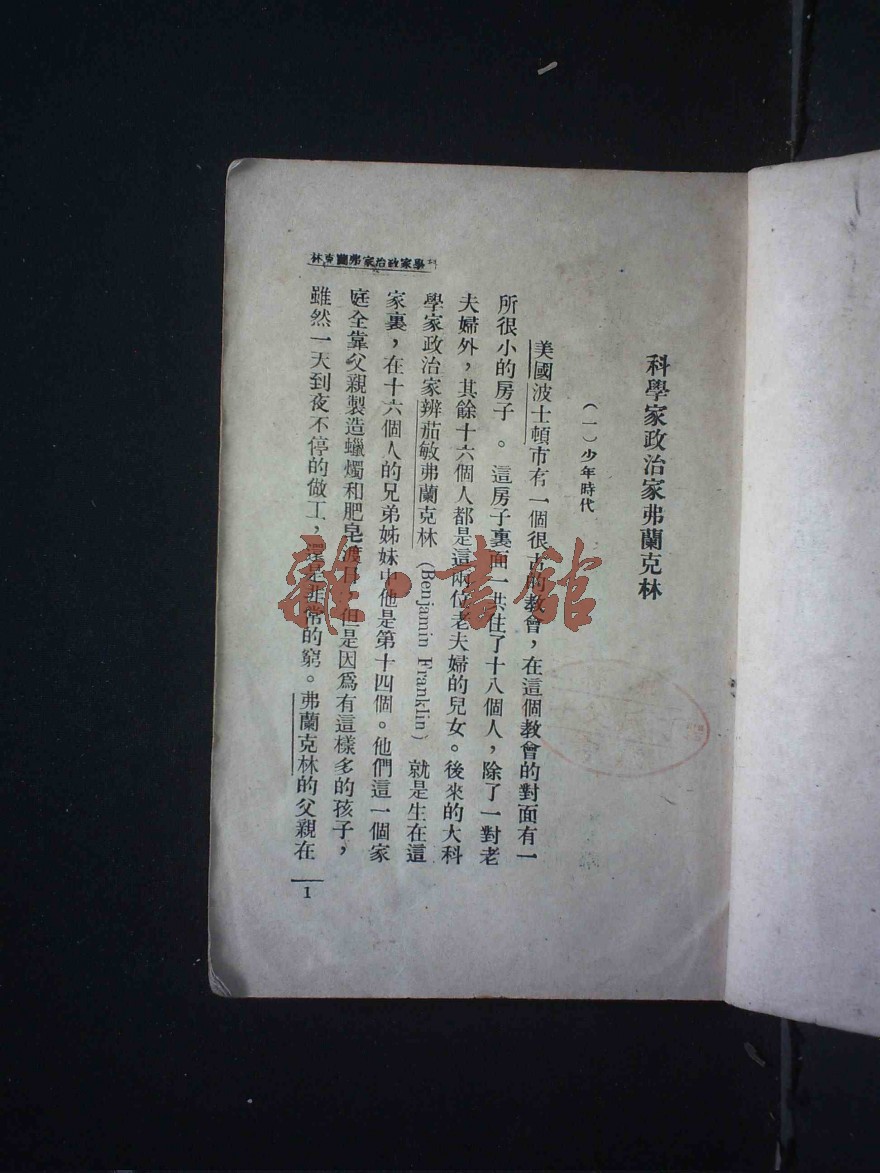 科學家政治家弗蘭克林
（一）少年時代
美國波士頓市有一個很古的教會，在這個教會的對面有一
所很小的房子。這房子裏面一共住了十八個人，除了一對老
夫婦外，其餘十六個人都是這兩位老夫婦的兒女。後來的大科
學家政治家辨茄敏弗蘭克林（Benjamin Franklin）就是生在這
家裏，在十六個人的兄弟姊妹中他是第十四個。他們這一個家
庭全靠父親製造蠟燭和肥皂渡日，但是因爲有這樣多的孩子，
雖然一天到夜不停的做工，還是非常的窮。弗蘭克林的父親在
科學家政治家弗蘭克林
1
雜·書館